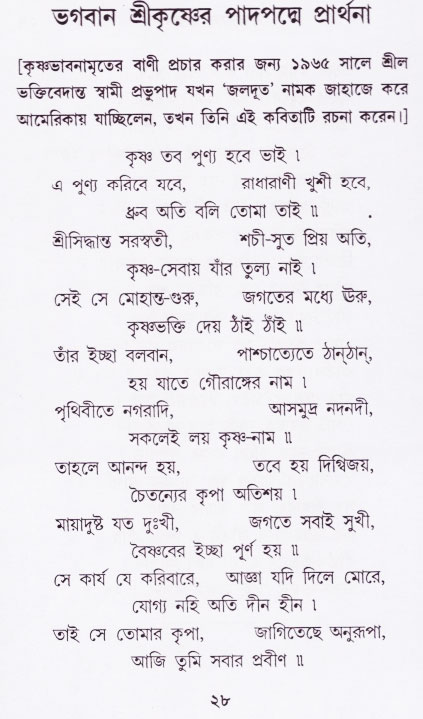 ভগবান শ্রীকৃষ্ণের পাদপদ্মে প্রার্থনা
[কৃষ্ণভাবনামৃতের বাণী প্রচার করার জন্য ১৯৬৫ সালে শ্রীল
ভক্তিবেদান্ত স্বামী প্রভুপাদ যখন ‘জলদূত’ নামক জাহাজে করে
আমেরিকায় যাচ্ছিলেন, তখন তিনি এই কবিতাটি রচনা করেন।]
কৃষ্ণ তব পুণ্য হবে ভাই ।
এ পুণ্য করিবে যবে, রাধারাণী খুশী হবে,
ধ্রুব অতি বলি তোমা তাই ॥
শ্রীসিদ্ধান্ত সরস্বতী, শচী-সুত প্রিয় অতি,
কৃষ্ণ-সেবায় যাঁর তুল্য নাই ।
সেই সে মোহান্ত-গুরু, জগতের মধ্যে ঊরু,
কৃষ্ণভক্তি দেয় ঠাঁই ঠাঁই ॥
তাঁর ইচ্ছা বলবান, পাশ্চাত্যেতে ঠান্‌ঠান্‌,
হয় যাতে গৌরাঙ্গের নাম ।
পৃথিবীতে নগরাদি, আসমুদ্র নদনদী,
সকলেই লয় কৃষ্ণ-নাম ॥
তাহলে আনন্দ হয়, তবে হয় দিগ্বিজয়,
চৈতন্যের কৃপা অতিশয় ।
মায়াদুষ্ট যত দুঃখী, জগতে সবাই সুখী,
বৈষ্ণবের ইচ্ছা পূর্ণ হয় ॥
সে কার্য যে করিবারে, আজ্ঞা যদি দিলে মোরে,
যোগ্য নহি অতি দীন হীন ।
তাই সে তোমার কৃপা, জাগিতেছে অনুরূপা,
আজি তুমি সবার প্রবীণ ॥
২৮